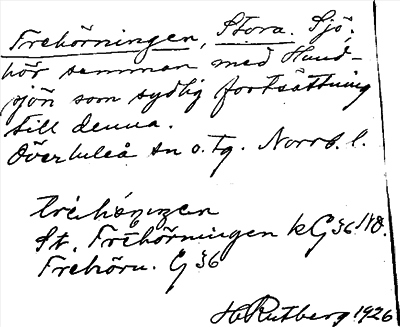 Trehörningen, Stora. Sjö.
hör samman med Hund-
sjön som sydlig fortsättning
till denna.
Överluleå sn o. tg. Norrb. l.
St. Trehörningen kG 36 NO.
Trehörn. G 36
H Rutberg 1926